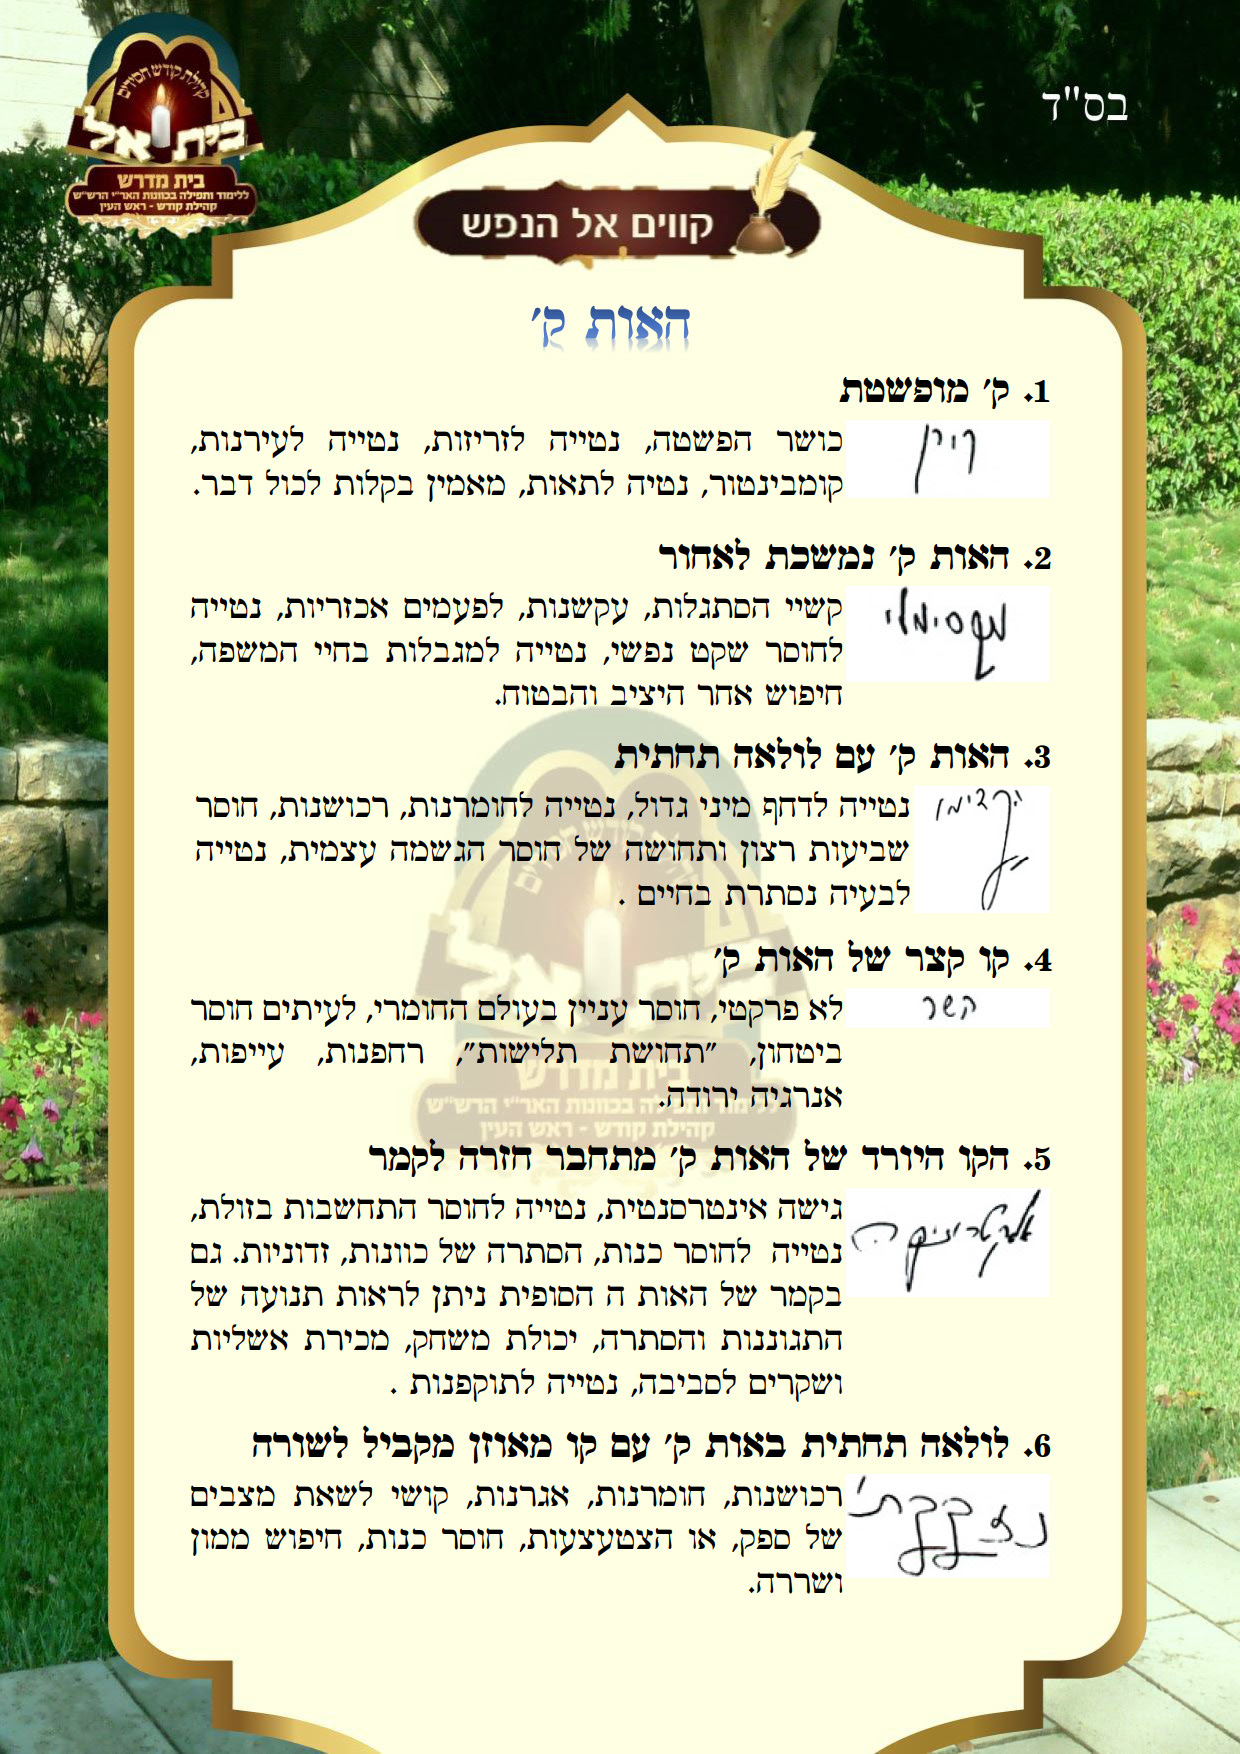 בס"ד
קהילת קודש חסידים
בית אל
בית מדרש
ללימוד ותפילה בכוונות האר"י הרש"ש
קהילת קודש - ראש העין
קווים אל הנפש
האות ק'
1. ק' מופשטת
כושר הפשטה, נטייה לזריזות, נטייה לעירנות,
קומבינטור, נטיה לתאות, מאמין בקלות לכול דבר.
2. האות ק' נמשכת לאחור
מקסימלי
קשיי הסתגלות, עקשנות, לפעמים אכזריות, נטייה
לחוסר שקט נפשי, נטייה למגבלות בחיי המשפה,
חיפוש אחר היציב והבטוח.
3. האות ק' עם לולאה תחתית
נטייה לדחף מיני גדול, נטייה לחומרנות, רכושנות, חוסר
שביעות רצון ותחושה של חוסר הגשמה עצמית, נטייה
לבעיה נסתרת בחיים .
4. קו קצר של האות ק'
קשר
לא פרקטי, חוסר עניין בעולם החומרי, לעיתים חוסר
ביטחון, "תחושת תלישות", רחפנות, עייפות,
אנרגיה ירודה.
5. הקו היורד של האות ק' מתחבר חזרה לקמר
אלקטרוניקה
גישה אינטרסנטית, נטייה לחוסר התחשבות בזולת,
נטייה לחוסר כנות, הסתרה של כוונות, זדוניות. גם
בקמר של האות ה הסופית ניתן לראות תנועה של
התגוננות והסתרה, יכולת משחק, מכירת אשליות
ושקרים לסביבה, נטייה לתוקפנות .
6. לולאה תחתית באות ק' עם קו מאוזן מקביל לשורה
רכושנות, חומרנות, אגרנות, קושי לשאת מצבים
של ספק, או הצטעצעות, חוסר כנות, חיפוש ממון
ושררה.